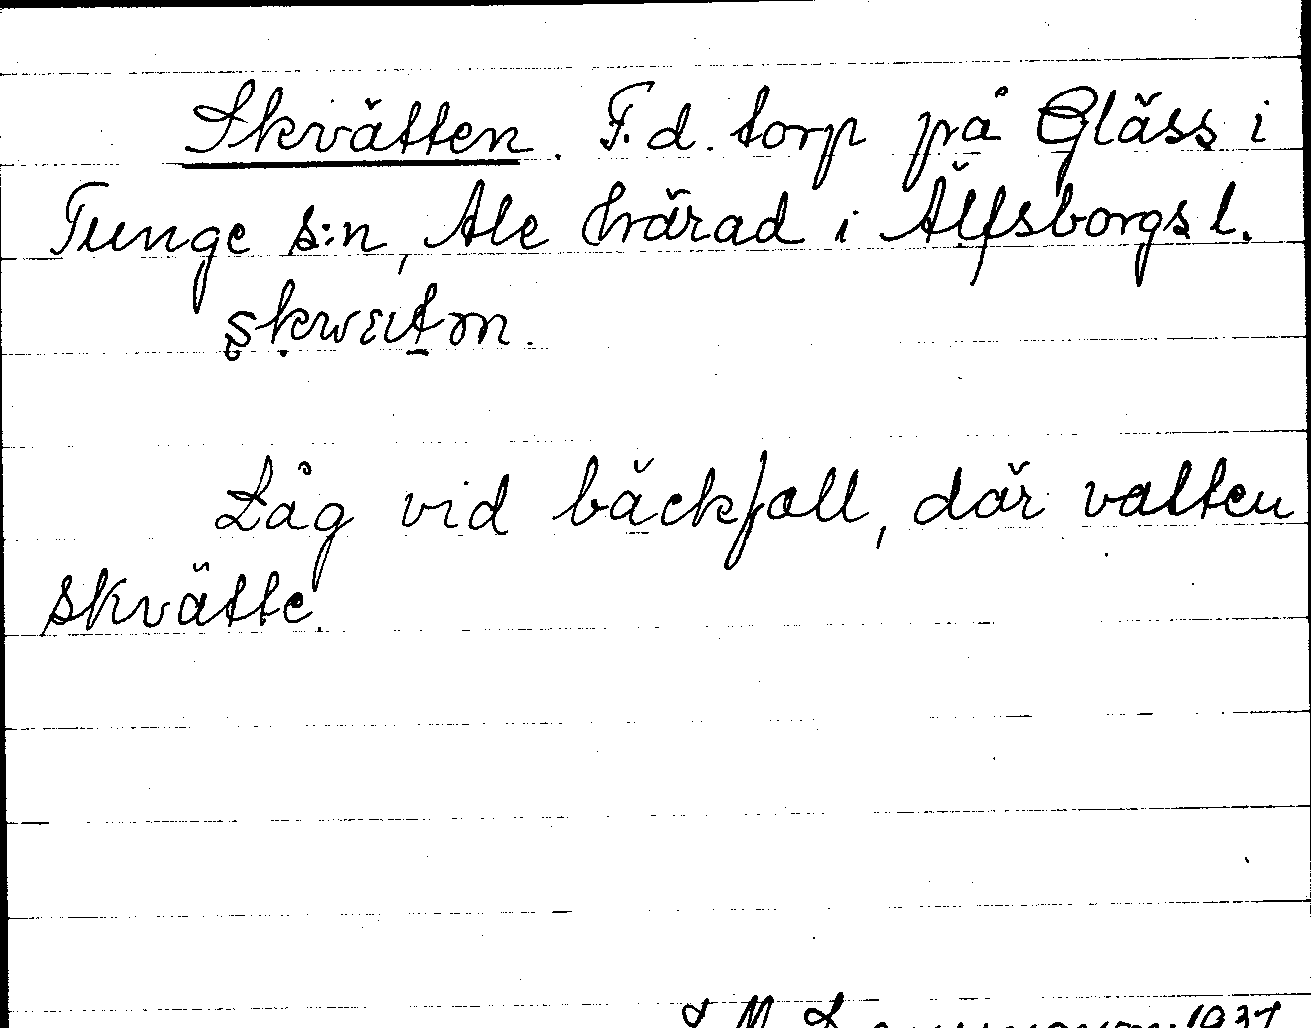 Skvätten. F.d. torp på Gläss i
Tunge s:n, Ale härad i Älfsborgs l.
Låg vid bäckfall, där vatten
skvätte.
1937